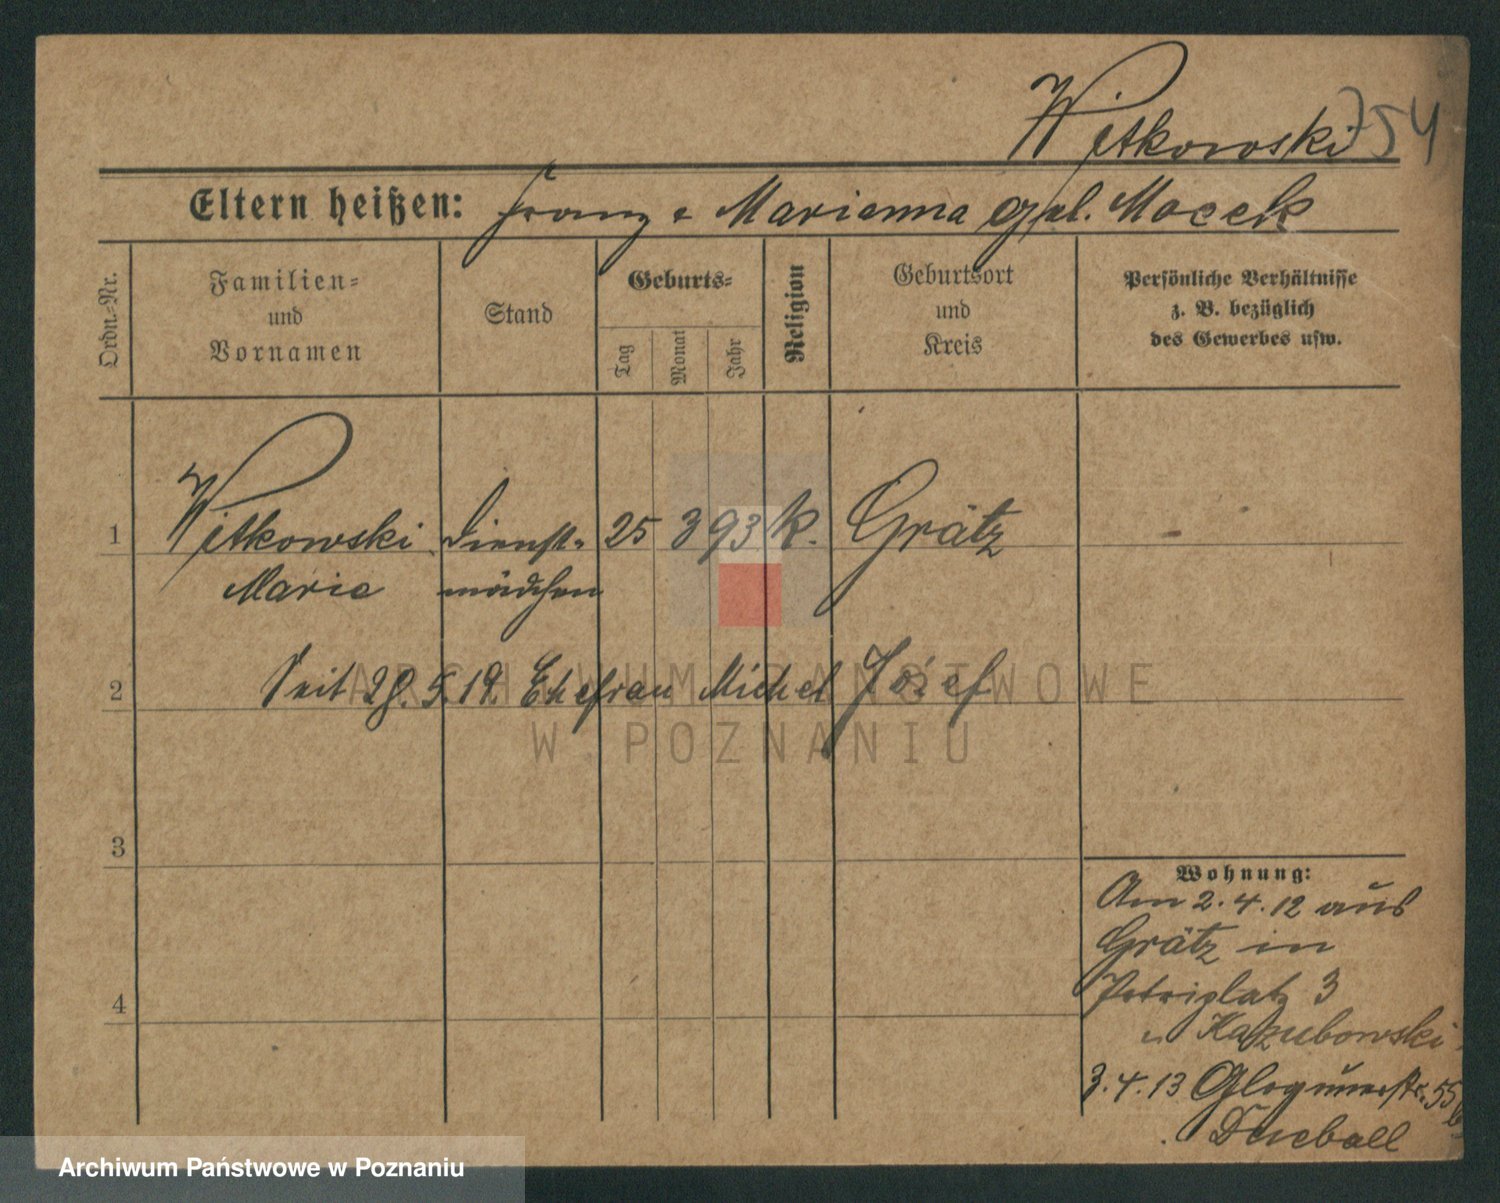 Witkowski 754
Eltern heißen: Franz u Marianna geb. Macek
Ordn.-Nr.
Familien-
und
Vornamen
Stand
Geburts-
Tag
Monat
Jahr
Religion
Geburtsort
und
Kreis
Persönliche Verhältnisse
z. B. bezüglich
des Gewerbes usw.
1 Witkowski Dienst- 25 3 93 k. Grätz
Marie mädchen
2 Seit 28.5.19. Ehefrau Michel Józef
3
4
Wohnung:
Am 2.4.12 aus
Grätz in
Petriplatz 3
Kazubowski
3.4.13 Glogauerstr. 55
ARCHIWUM PAŃSTWOWE
W POZNANIU
Archiwum Państwowe w Poznaniu